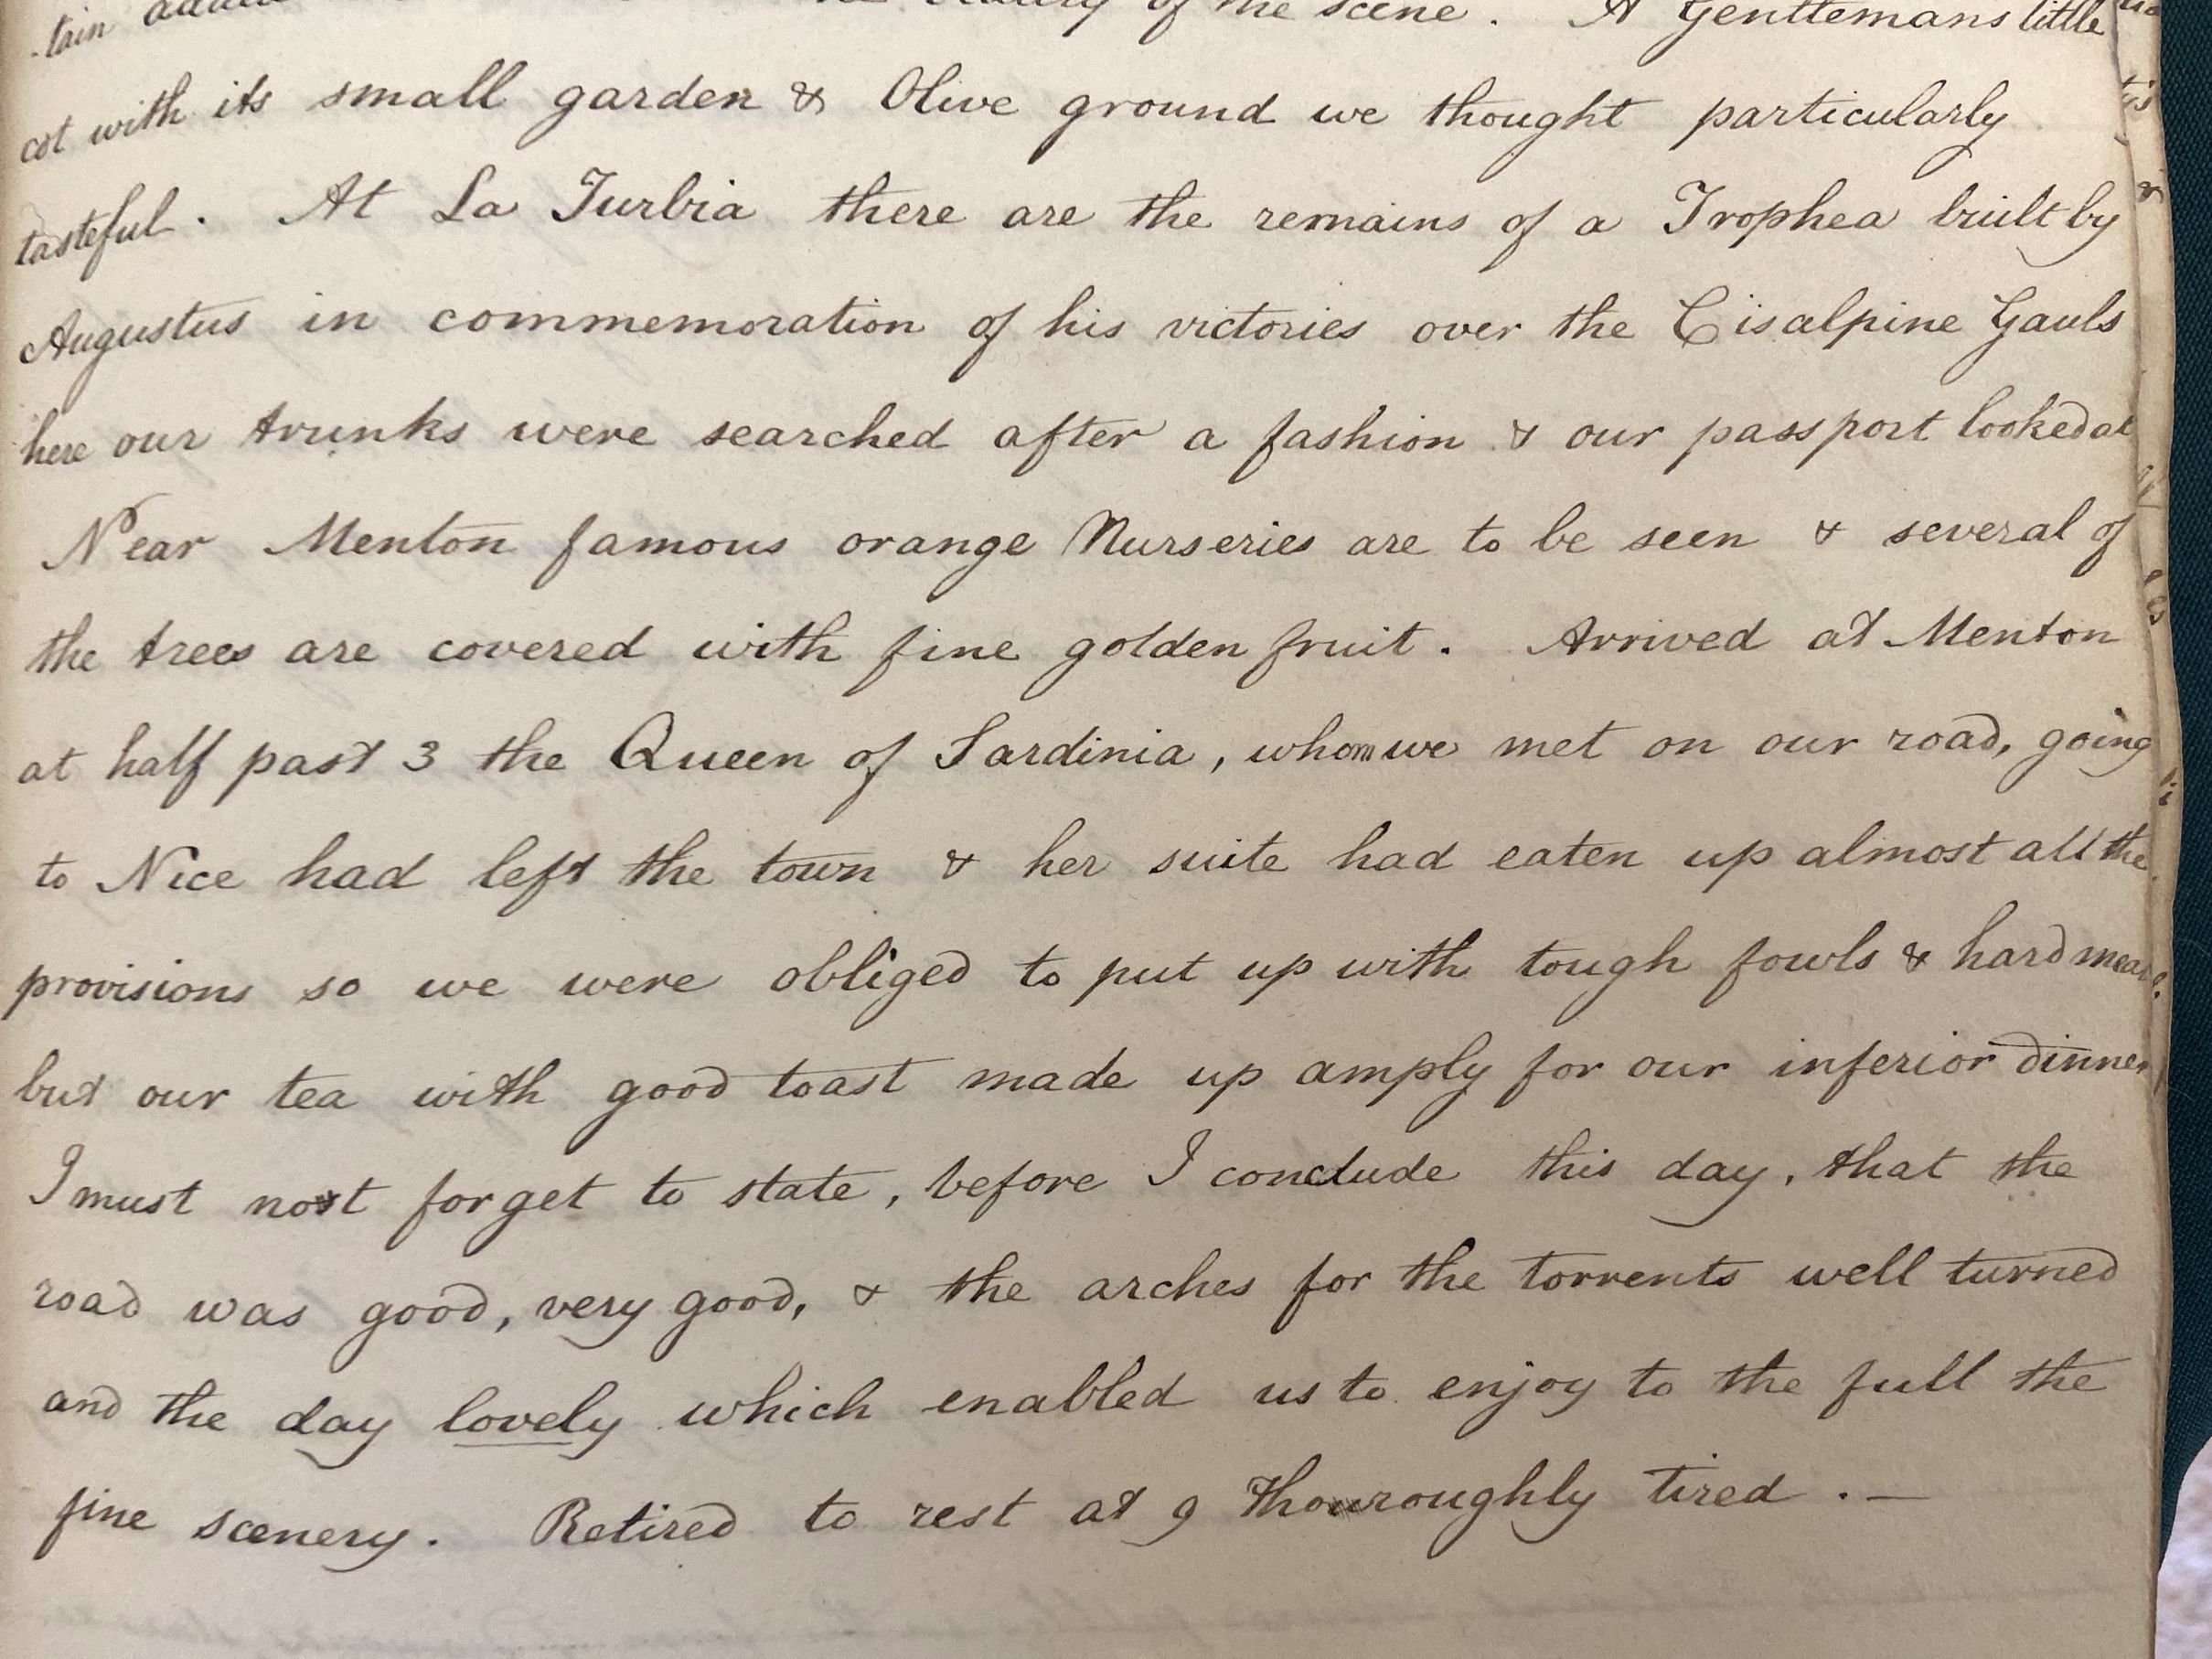 -tain the beauty of the scene. A Gentlemans little
cot with its small garden & Olive ground we thought particularly
tasteful. At La Turbia there are the remains of a Trophea built by
Augustus in commemoration of his victories over the Cisalpine Gauls
here our trunks were searched after a fashion & our passport looked at
Near Menton famous orange Nurseries are to be seen & several of
the trees are covered with fine golden fruit. Arrived at Menton
at half past 3 the Queen of Sardinia, whom we met on our road, going
to Nice had left the town & her suite had eaten up almost all the
provisions so we were obliged to put up with tough fowls & hard
but our tea with good toast made up amply for our inferior dinner
I must not forget to state, before I conclude this day, that the
road was good, very good, & the arches for the torrents well turned
and the day lovely which enabled us to enjoy to the full the
fine scenery. Retired to rest at 9 thouroughly tired. —